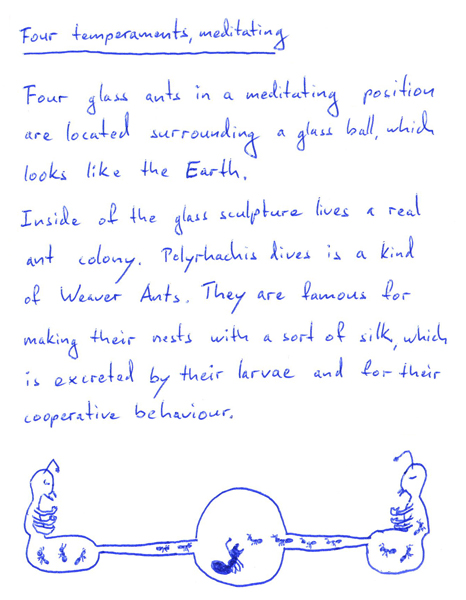 Four temperaments, meditating
Four glass ants in a meditating position
are located surrounding a glass ball, which
looks like the Earth.
Inside of the glass sculpture lives a real
ant colony. Polyrhachis dives is a kind
of Weaver Ants. They are famous for
making their nests with a sort of silk, which
is excreted by their larvae and for their
cooperative behaviour.